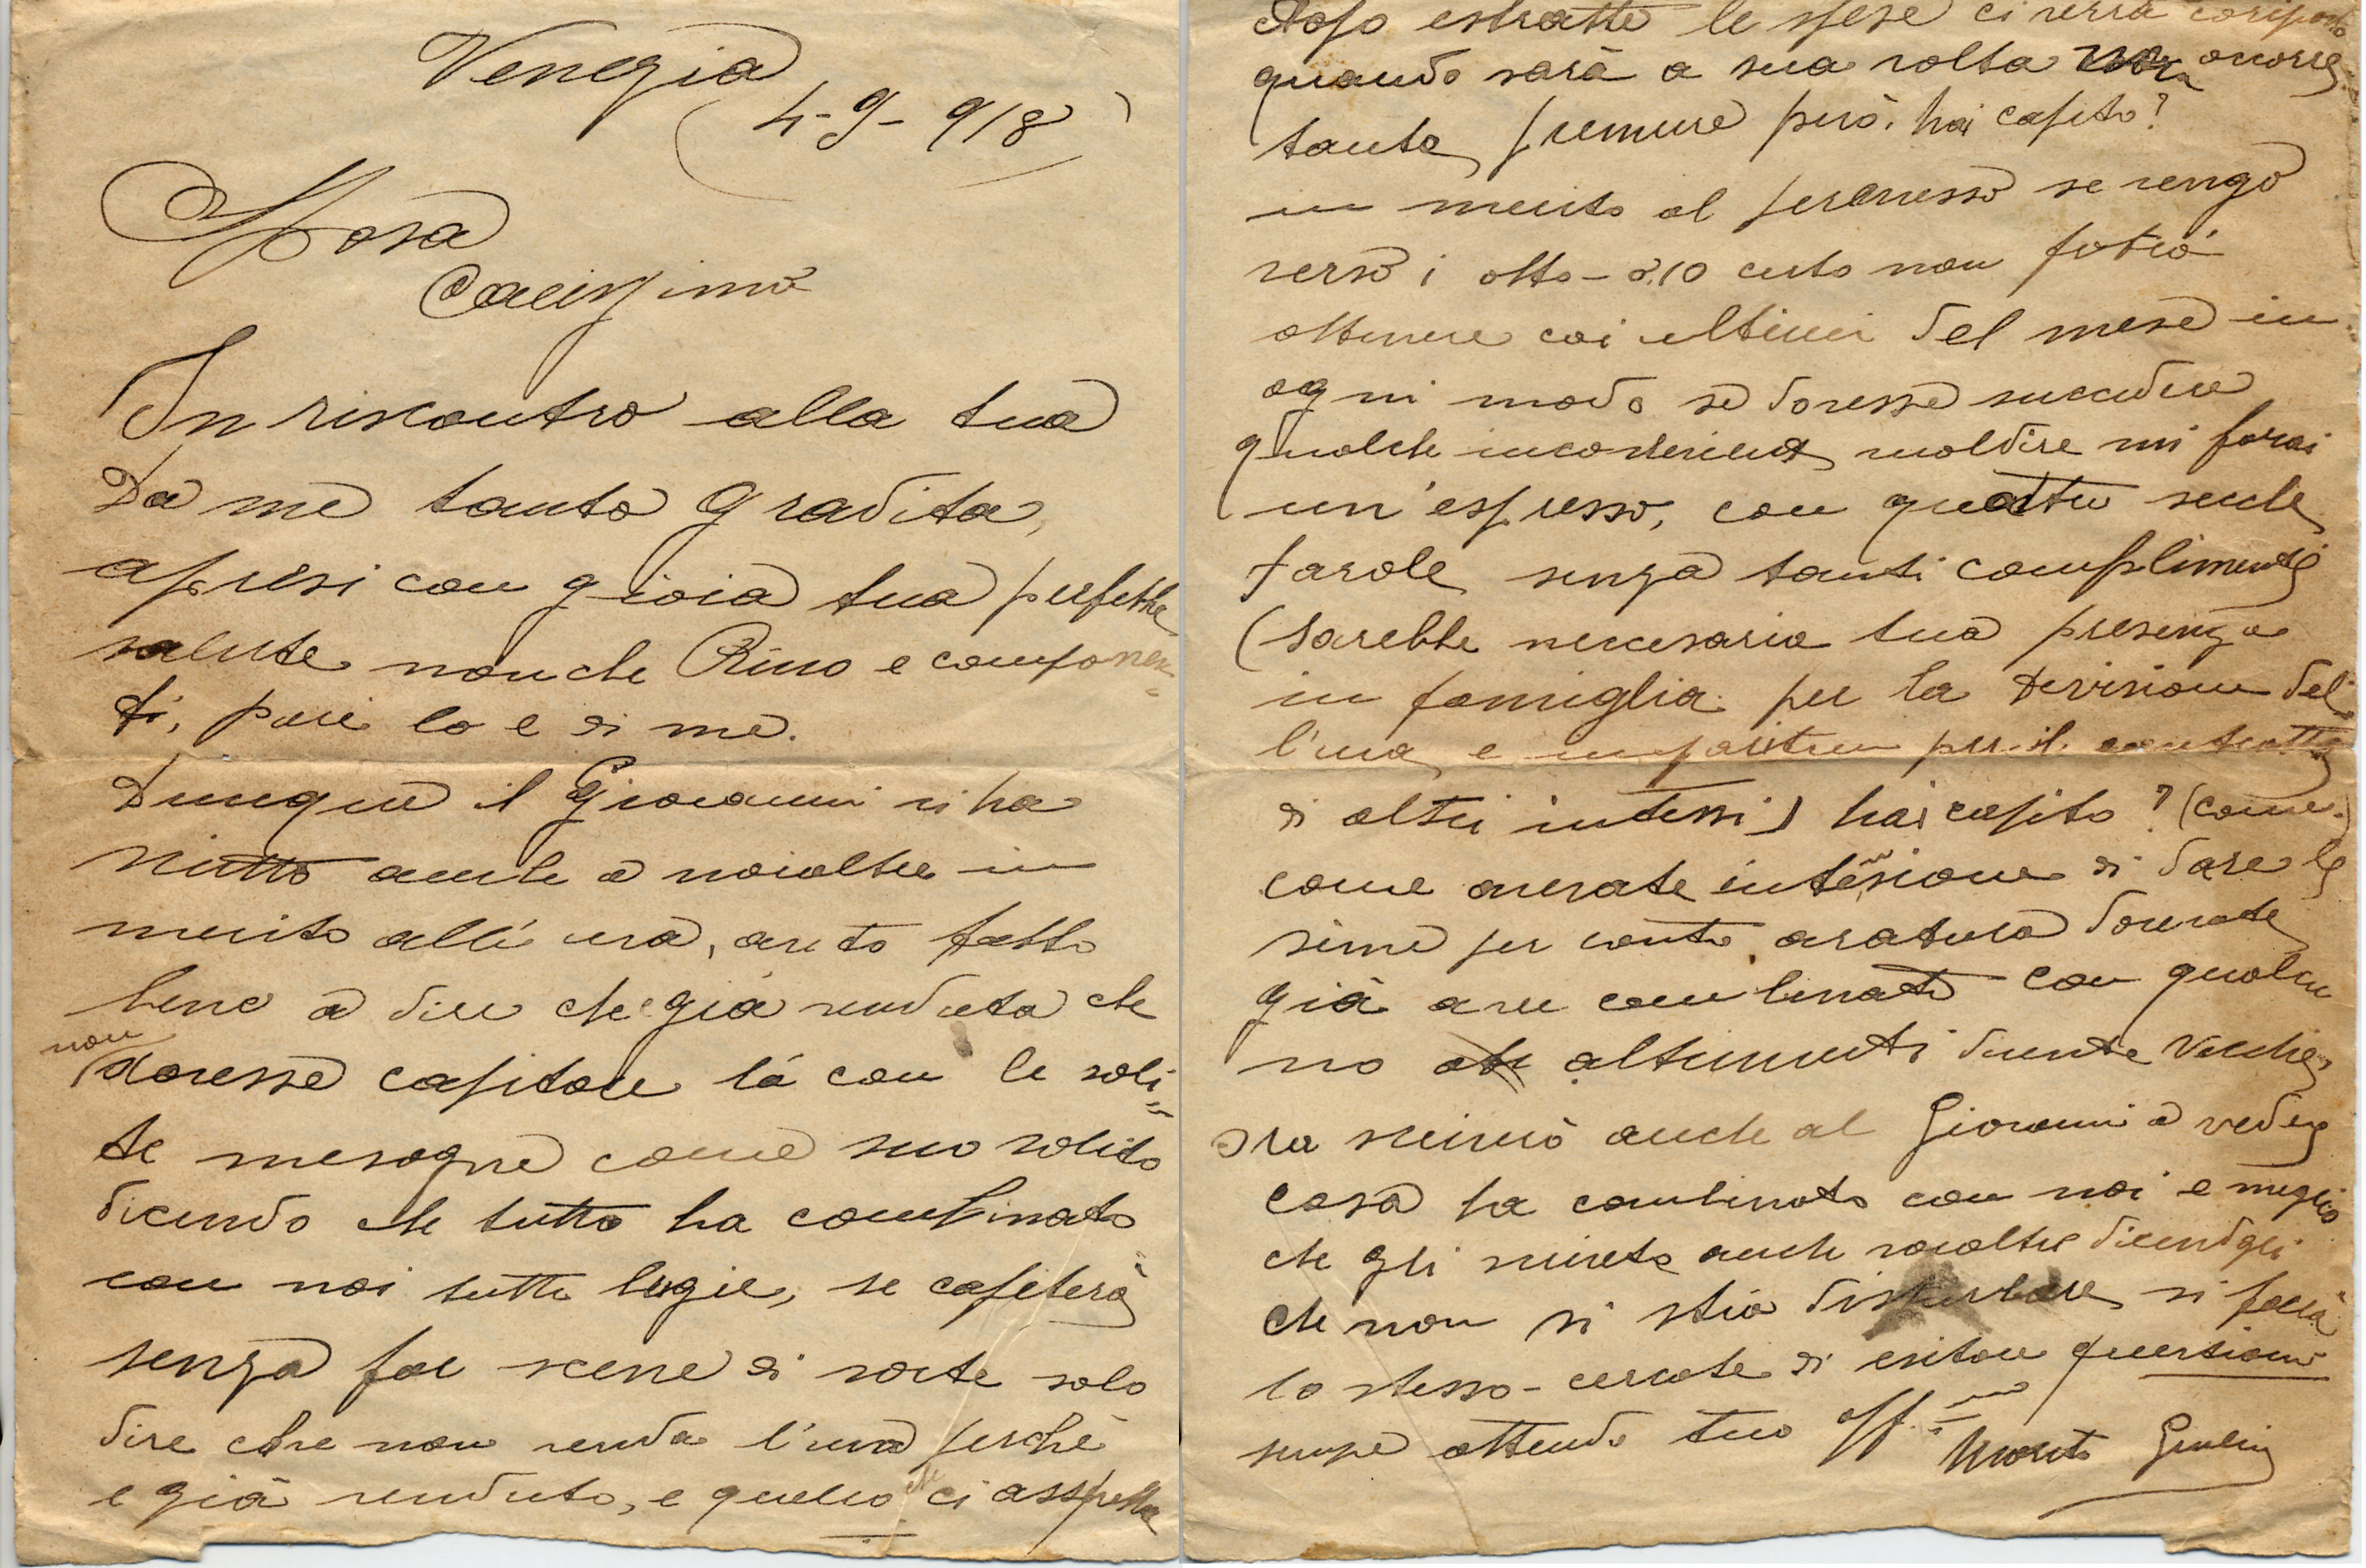 Venezia
4-9-918
Sposa
Carissima
In riscontro alla tua
Da me tanto gradita,
apresi con gioia tua perfetta
salute nonche Rino e componen=
ti, pari lo e di me.
Dunque il Giovanni vi ha
scritto anche a voialtre in
merito all'uva, avete fatto
bene a dire che già venduta che
non
dovesse capitare là con le soli=
te mensogne come suo solito
dicendo che tutto ha combinato
con noi tutte bugie, se capiterà
senza far scene di sorte solo
dire che non venda l'uva perchè
e già venduta, e quello che ci asspetta
Dopo estratte le spese ci verrà corisposto
quando sarà a sua volta non occorre
tanta premura però, hai capito?
in merito al permesso se vengo
verso i otto - o 10 certo non potrò
ottenere coi ultimi del mese in
ogni modo se dovesse succedere
qualche inconveniente vuoldire mi farai
un'espresso, con quattro secche
parole senza tanti complimenti
(sarebbe necesaria tua presenza
in famiglia per la devisione del=
l'uva e per il contratto
di altri intessi) hai capito? (come.)
come avevate intensione di dare le
sieme per conto aratura dovevate
già aver combinato con qualcu
no altrimenti diventa vecchie,
Ora scriverò anche al Giovanni a vedere
cosa ha combinato con noi e meglio
che gli scrivete anche voialtre dicendgli
che non si stia disturbare si farà
lo stesso - cercate di evitare questioni
sempre attendo tuo aff=mo
Marito Giulio